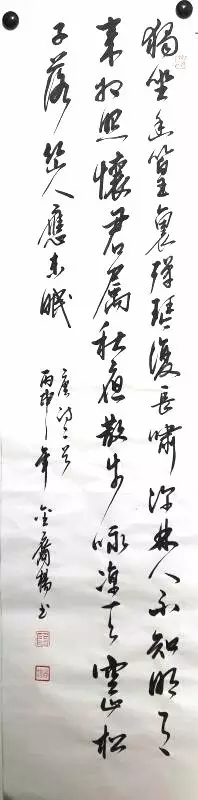 獨坐幽篁裏弹琴復長嘯深林人不知明月
来相照懷君屬秋夜散步詠凉天空山松
子落幽人應未眠
唐詩二首
丙申年 金 楊书